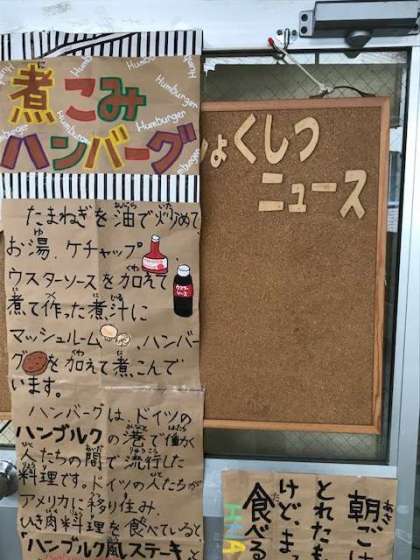 煮こみ
ハンバーグ
Humburger
Humburger
Humburger
Humburger
Humburger
たまねぎを油で炒めて、
お湯、ケチャップ、
ウスターソースを加えて
煮て作った煮汁に
マッシュルーム、ハンバー
グを加えて煮こんで
います。
ハンバーグは、ドイツの
ハンブルクの港で働く
人たちの間で流行した
料理です。ドイツの人たちが
アメリカに移り住み、
ひき肉料理を食べていると
「ハンブルク風ステーキと
ウスターソース
しょくしつ
ニュース
朝ごは
とれた
けど、ま
食べる